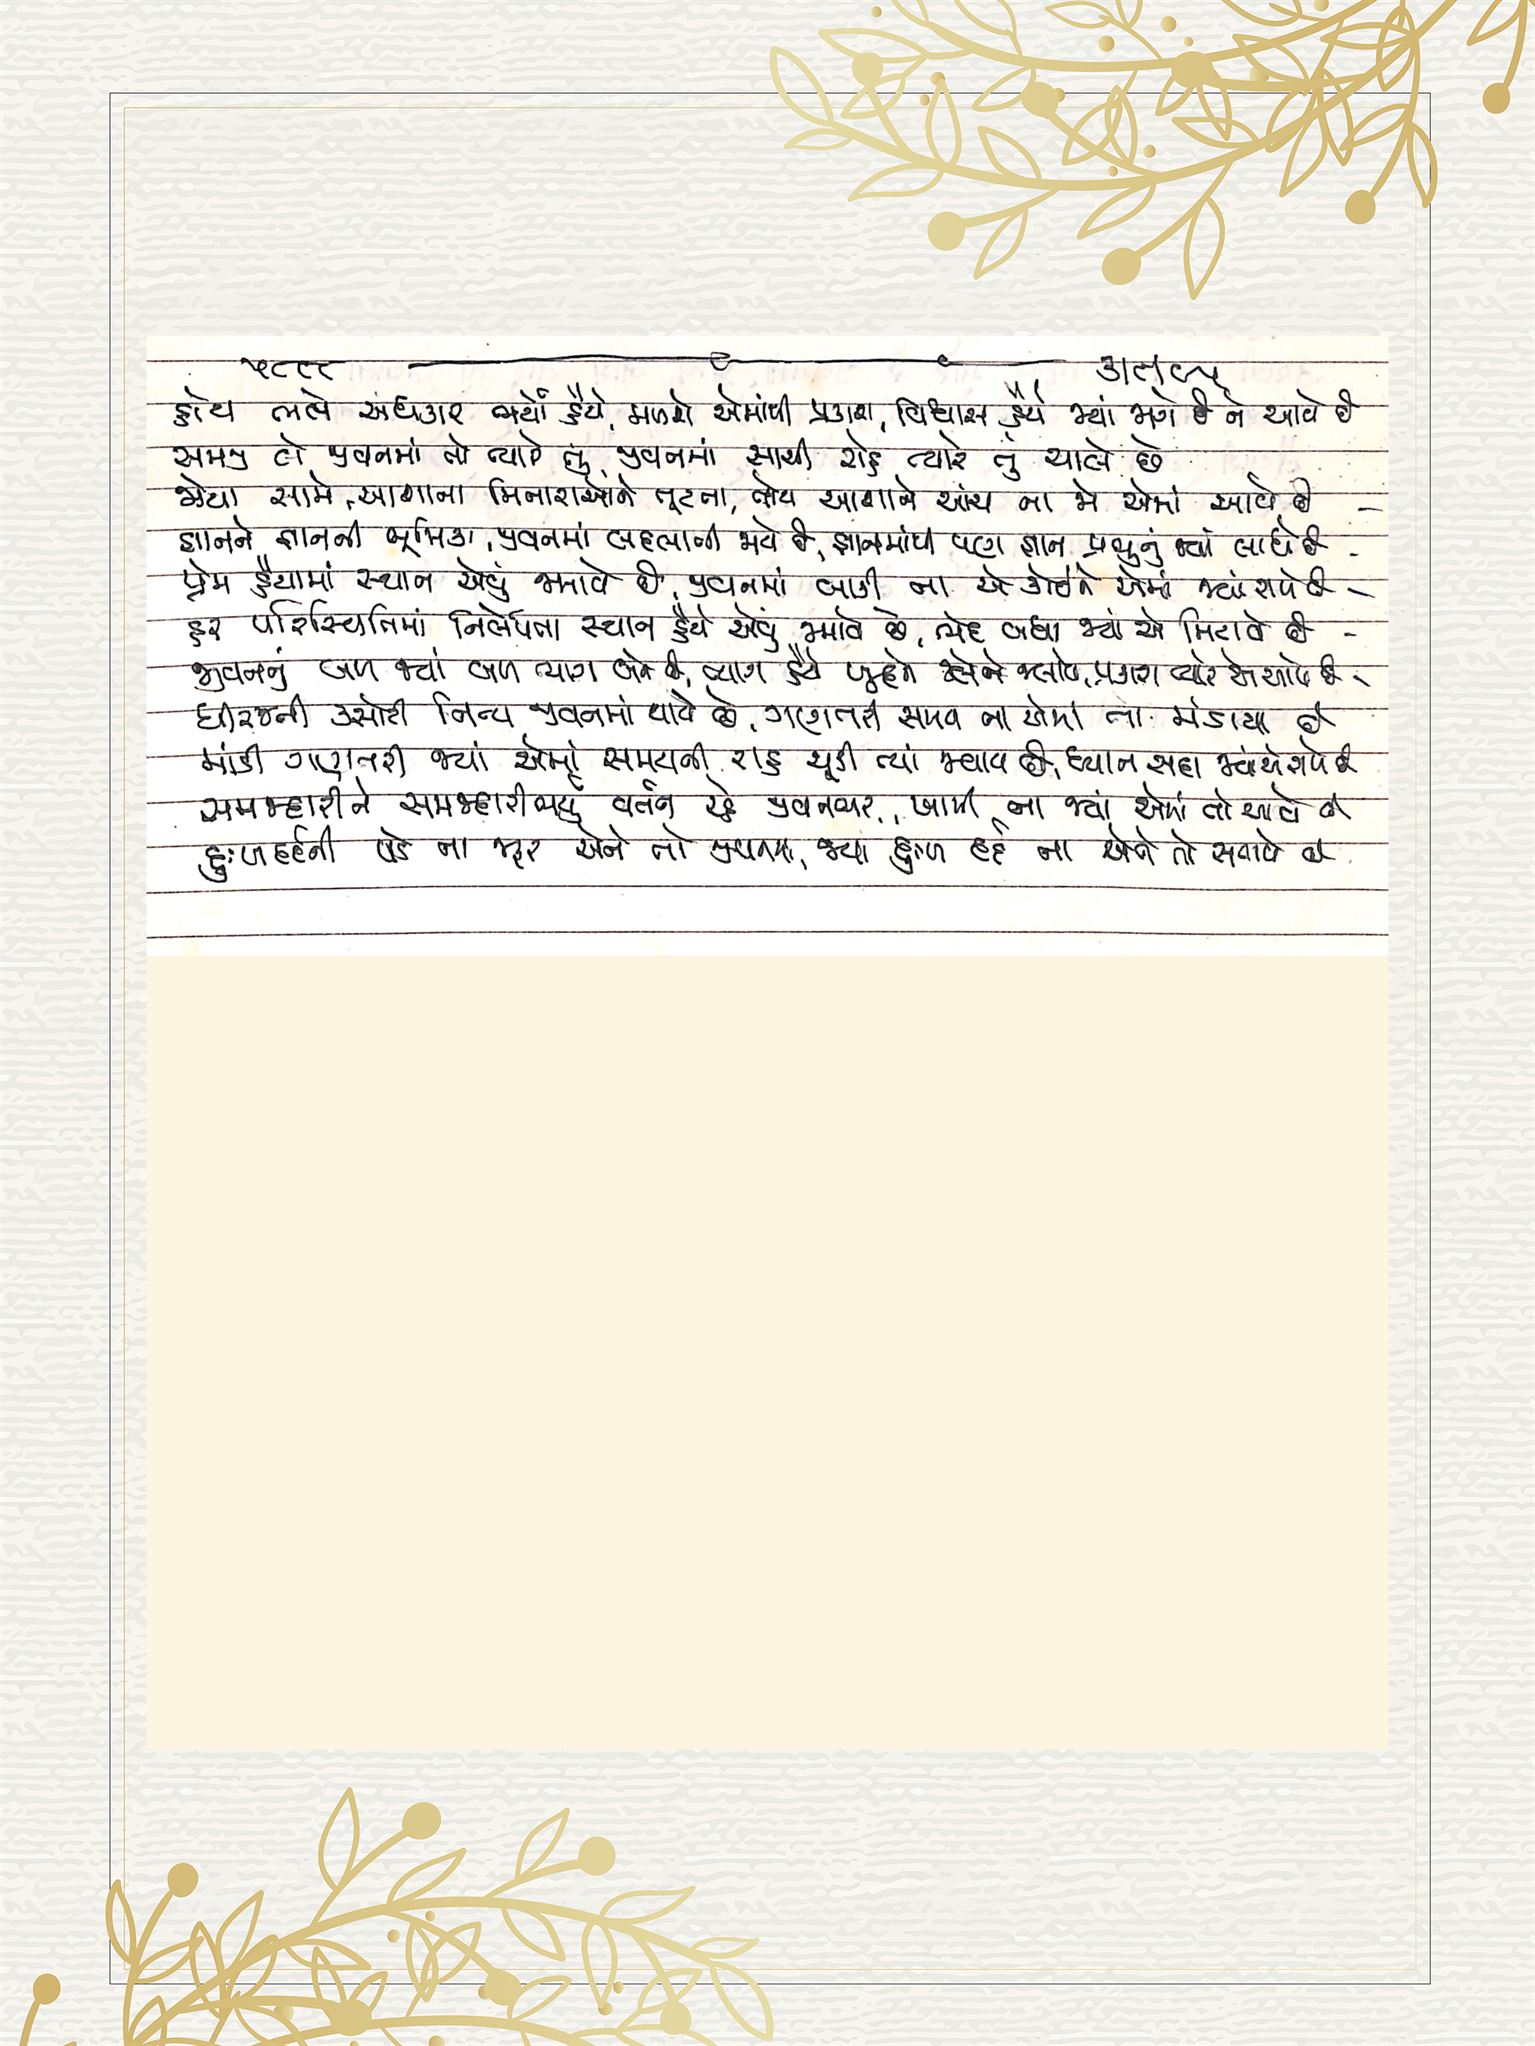 ૫૮૯૯
હોય ભલે અંધકાર ભર્યો હૈયે, મળશે એમાંથી પ્રકાશ, વિશ્વાસ હૈયે જ્યાં જાગે છે ને આવે છે
સમજી લે જીવનમાં તો ત્યારે તું, જીવનમાં સાચી રાહે ત્યારે તું ચાલે છે
જોયા સામે, આશાના મિનારાઓને તૂટતા, તોય આશાને આંચ ના જો એમાં આવે છે -
જ્ઞાનને જ્ઞાનની ભૂમિકા, જીવનમાં બદલાતી જાયે છે, જ્ઞાનમાંથી પણ જ્ઞાન પ્રભુનું જ્યાં લાધે છે -
પ્રેમ હૈયામાં સ્થાન એવું જમાવે છે, જીવનમાં બાકી ના એ કોઈને એમાં જ્યાં રાખે છે -
હર પરિસ્થિતિમાં નિર્લેપતા સ્થાન હૈયે એવું જમાવે છે, ભેદ બધા જ્યાં એ મિટાવે છે -
જીવનનું બળ જ્યાં બળ ત્યાગ બને છે, ત્યાગ હૈયે
ધીરજની કસોટી નિત્ય જીવનમાં થાયે છે, ગણતરી સમય ના એમાં ના મંડાયા છે
માંડી ગણતરી જ્યાં એમાં સમયની, રાહ ચૂકી ત્યાં જવાય છે, ધ્યાન સદા જ્યાં એ રાખે છે
સમજદારીને સમજદારીભર્યું વર્તન રહે જીવનભર, ખામી ના જ્યાં એમાં તો આવે છે
દુઃખદર્દની પડે ના જરૂર એને તો જીવનમાં, જ્યાં દુઃખ દર્દ ના એને તો સતાવે છે